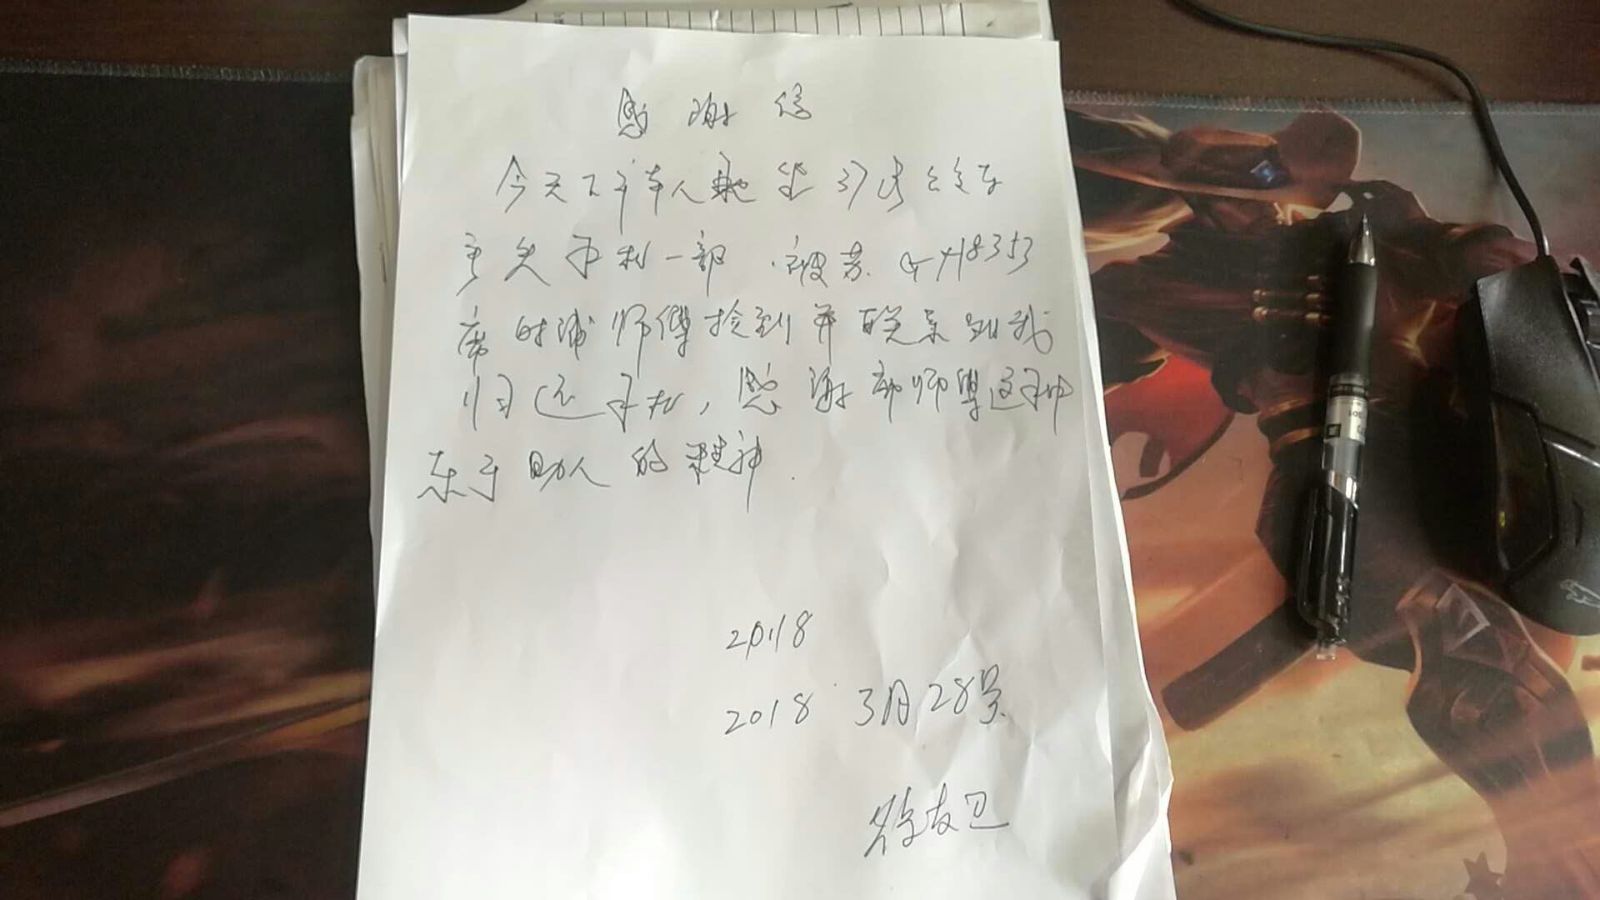 感谢信
今天下午本人乘坐37路公交车
丢失手机一部.被苏G
师傅捡到并联系到我
归还手机,感谢师傅这种
乐于助人的精神.
2018
2018 3月28号
友卫